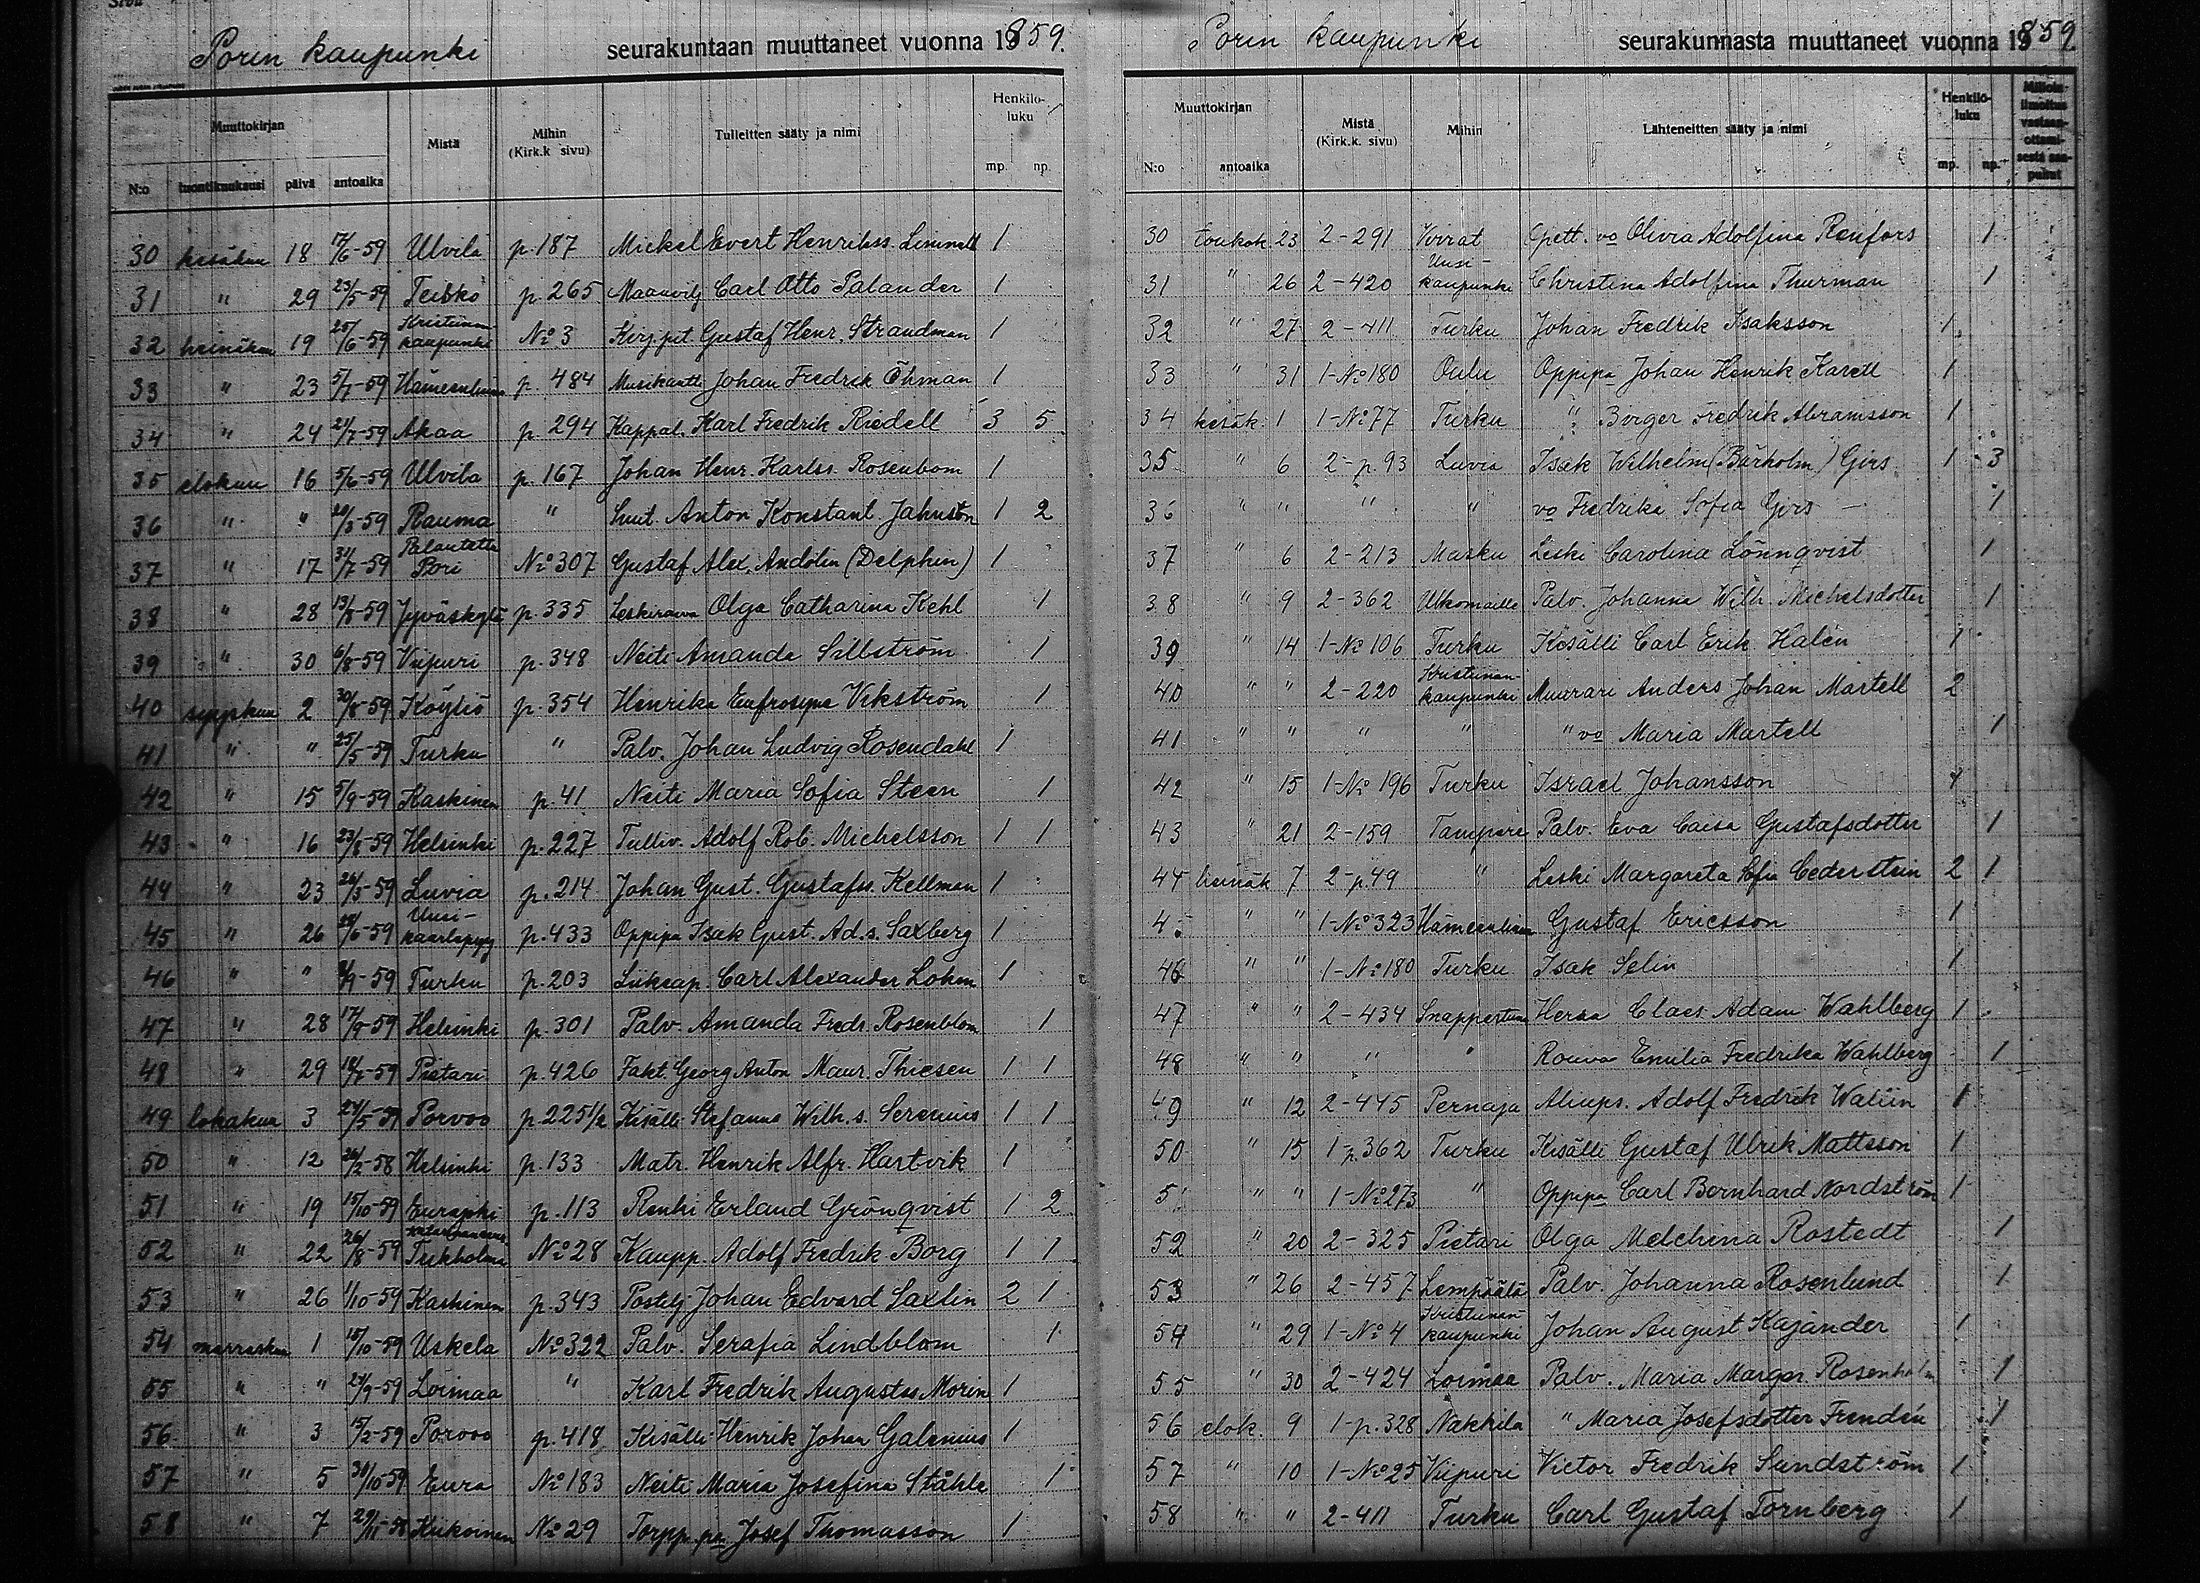 Porin kaupunki seurakuntaan muuttaneet vuonna 1859.
Muuttokirjan Mistä Mihin (Kirk.k sivu) Tulleitten sääty ja nimi Henkilö-luku
N:o tuontikuukausi päivä antoaika mp. np.
30 kesäkuu 18 17/6-59 Ulvila p.187 Mickel Evert Henrikss. 1
31 " 29 23/5-59 p.265 Maanvilj Carl Otto Palander 1
32 heinäkuu 19 /6-59 Kristiinankaupunki No 3 Kirj.pit. Gustaf Henr. Strandman 1
33 " 23 5/7-59 Hämeenlinna p.484 Musikantti Johan Fredrik Öhman 1
34 " 24 21/7-59 Akaa p.294 Kappal. Karl Fredrik Riedell 3 5
35 elokuu 16 5/6-59 Ulvila p.167 Johan Henr. Karlss. Rosenbom 1
36 " " /3-59 Rauma " Anton Konstant 1 2
37 " 17 31/7-59 Palautettu Pori No 307 Gustaf Alex. Andolin (Delphin) 1
38 " 28 13/8-59 Jyväskylä p.335 Leskirouva Olga Catharina Kehl 1
39 " 30 6/8-59 Viipuri p.348 Neiti Amanda Sillström 1
40 syyskuu 2 30/8-59 Köyliö p.354 Henrika Eufrosyna Vikström 1
41 " " 25/5-59 Turku " Palv. Johan Ludvig Rosendahl 1
42 " 15 5/9-59 Kaskinen p.41 Neiti Maria Sofia Steen 1
43 " 16 23/8-59 Helsinki p.227 Tulliv. Adolf Rob. Michelsson 1 1
44 " 23 /3-59 Luvia p.214 Johan Gust. Gustafss. Kellman 1
45 " 26 /6-59 Uusi-kaarlepyy p.433 Oppipa Isak Gust. Ad.s. Saxberg 1
46 " " /9-59 Turku p.203 Liikeap. Carl Alexander 1
47 " 28 17/9-59 Helsinki p.301 Palv. Amanda Fredr. Rosenblom 1
48 " 29 -59 Pietari p.426 Fakt. Georg Anton Maur. Thiesen 1 1
49 lokakuu 3 /5-59 Porvoo p.225 1/2 Kisälli Stefanus Wilh.s. Serenius 1 1
50 " 12 26/2-58 Helsinki p.133 Matr. Henrik Alfr. Hartvik 1
51 " 19 15/10-59 Eurajoki p.113 Renki Erland Grönqvist 1 2
52 " 22 26/8-59 No 28 Kaupp. Adolf Fredrik Borg 1 1
53 " 26 1/10-59 Kaskinen p.343 Postilj Johan Edvard Saxlin 2 1
54 marraskuu 1 15/10-59 Uskela No 322 Palv. Serafia Lindblom 1
55 " " /9-59 Loimaa " Karl Fredrik Augustss Morin 1
56 " 3 15/2-59 Porvoo p.418 Kisälli Henrik Johan Galenius 1
57 " 5 31/10-59 Eura No 183 Neiti Maria Josefina Ståhle 1
58 " 7 29/11-58 Kiikoinen No 29 Torpp.pa Josef Thomasson 1
Porin kaupunki seurakunnasta muuttaneet vuonna 1859.
Muuttokirjan Mistä (Kirk.k. sivu) Mihin Lähteneitten sääty ja nimi Henkilö-luku
N:o antoaika mp. np.
30 toukok. 23 2-291 Virrat Opett. vo Olivia Adolfina Renfors 1
31 " 26 2-420 Uusi-kaupunki Christina Adolfina Thurman 1
32 " 27 2-411 Turku Johan Fredrik Isaksson 1
33 " 31 1-No 180 Oulu Oppipa Johan Henrik Karell 1
34 kesäk. 1 1-No 77 Turku " Birger Fredrik Abramsson 1
35 " 6 2-p.93 Luvia Isak Wilhelm (Bärholm) Girs 1 3
36 " " " " vo Fredrika Sofia Girs 1
37 " 6 2-213 Masku Leski Carolina Lönnqvist 1
38 " 9 2-362 Ulkomaille Palv. Johanna Wilh. Michelsdotter 1
39 " 14 1-No 106 Turku Kisälli Carl Erik Halén 1
40 " " 2-220 Kristiinankaupunki Muurari Anders Johan Martell 2
41 " " " " " vo Maria Martell 1
42 " 15 1-No 196 Turku Israel Johansson 1
43 " 21 2-159 Tampere Palv. Eva Caisa Gustafsdotter 1
44 heinäk 7 2-p.49 " Leski Margareta Sofia Cederstein 2 1
45 " " 1-No 323 Hämeenlinna Gustaf Ericsson 1
46 " " 1-No 180 Turku Isak Selin 1
47 " " 2-434 Snappertuna Herra Claes Adam Wahlberg 1
48 " " " " Rouva Emilia Fredrika Wahlberg 1
49 " 12 2-445 Pernaja Aliups. Adolf Fredrik 1
50 " 15 1 p.362 Turku Kisälli Gustaf Ulrik Mattsson 1
51 " " 1-No 273 " Oppipa Carl Bernhard Nordström 1
52 " 20 2-325 Pietari Olga Melchina Rostedt 1
53 " 26 2-457 Lempäälä Palv. Johanna Rosenlund 1
54 " 29 1-No 4 Kristiinankaupunki Johan August Kajander 1
55 " 30 2-424 Loimaa Palv. Maria Margar. Rosenholm 1
56 elok. 9 1-p.328 Nakkila " Maria Josefsdotter Frendén 1
57 " 10 1-No 25 Viipuri Victor Fredrik Sundström 1
58 " " 2-411 Turku Carl Gustaf Tornberg 1